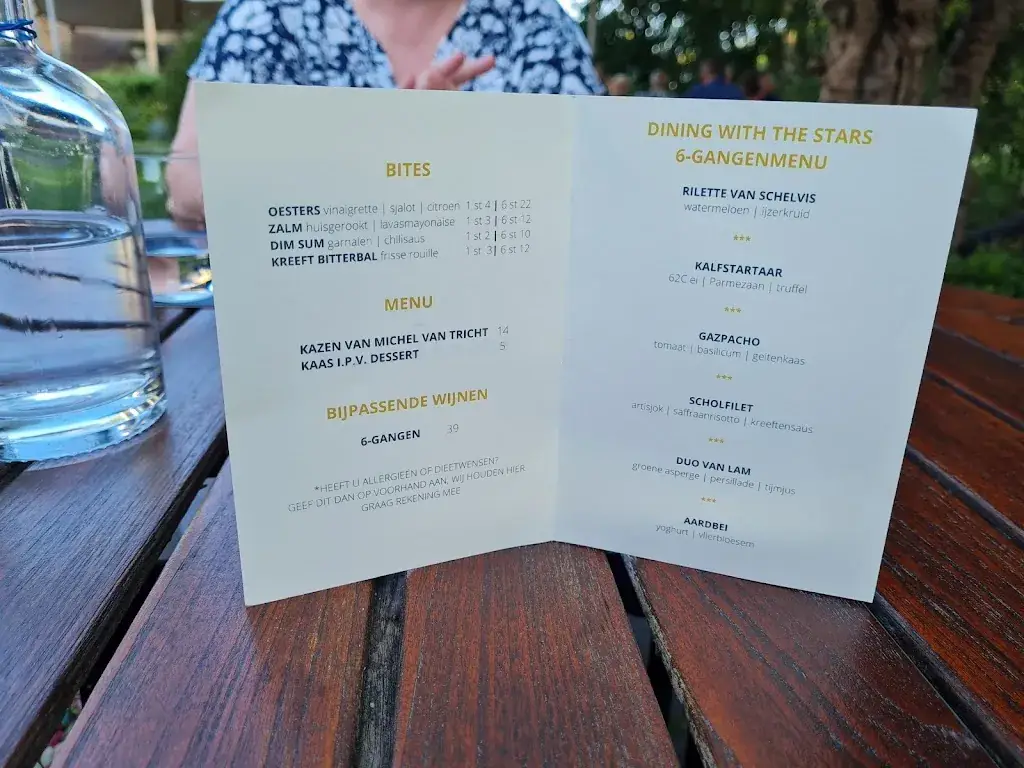 BITES
OESTERS vinaigrette | sjalot | citroen 1 st 4 | 6 st 22
ZALM huisgerookt | lavasmayonaise 1 st 3 | 6 st 12
DIM SUM garnalen | chilisaus 1 st 2 | 6 st 10
KREEFT BITTERBAL frisse rouille 1 st 3| 6 st 12
MENU
KAZEN VAN MICHEL VAN TRICHT 14
KAAS I.P.V. DESSERT 5
BIJPASSENDE WIJNEN
6-GANGEN 39
*HEEFT U ALLERGIEËN OF DIEETWENSEN?
GEEF DIT DAN OP VOORHAND AAN, WIJ HOUDEN HIER
GRAAG REKENING MEE
DINING WITH THE STARS
6-GANGENMENU
RILETTE VAN SCHELVIS
watermeloen | ijzerkruid
***
KALFSTARTAAR
62C ei | Parmezaan | truffel
***
GAZPACHO
tomaat | basilicum | geitenkaas
***
SCHOLFILET
artisjok | saffraanrisotto | kreeftensaus
***
DUO VAN LAM
groene asperge | persillade | tijmjus
***
AARDBEI
yoghurt | vlierbloesem